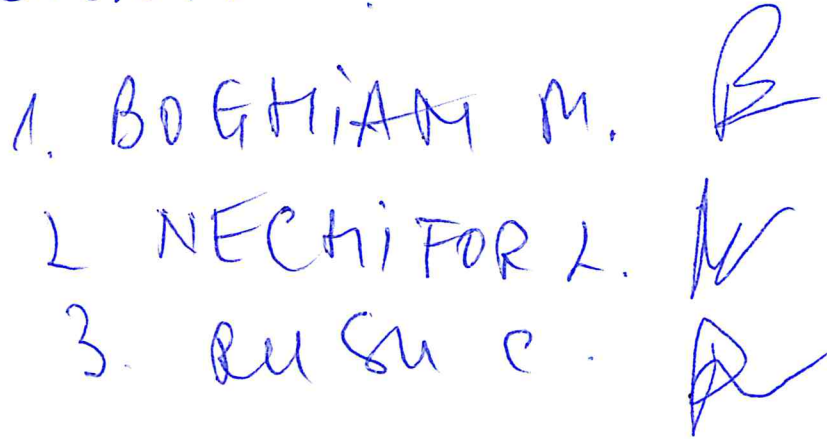 1. BOGHIAN M.
2 NECHIFOR L.
3. RUSU C.